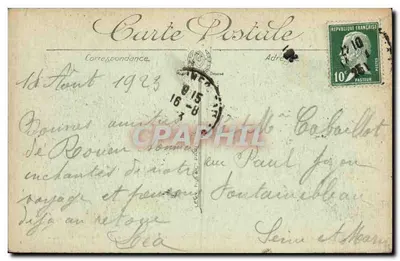 Carte Postale
Correspondance
REPUBLIQUE FRANÇAISE
10
PASTEUR
1923
8 15
16-8
Bonnes amitiés
de Rouen sommes
enchantés de notre
voyage et pensons
déjà au retour
Léa
Mr et Me Cabaillot
rue Paul
Fontainebleau
Seine et Marne
CPA PHOTO